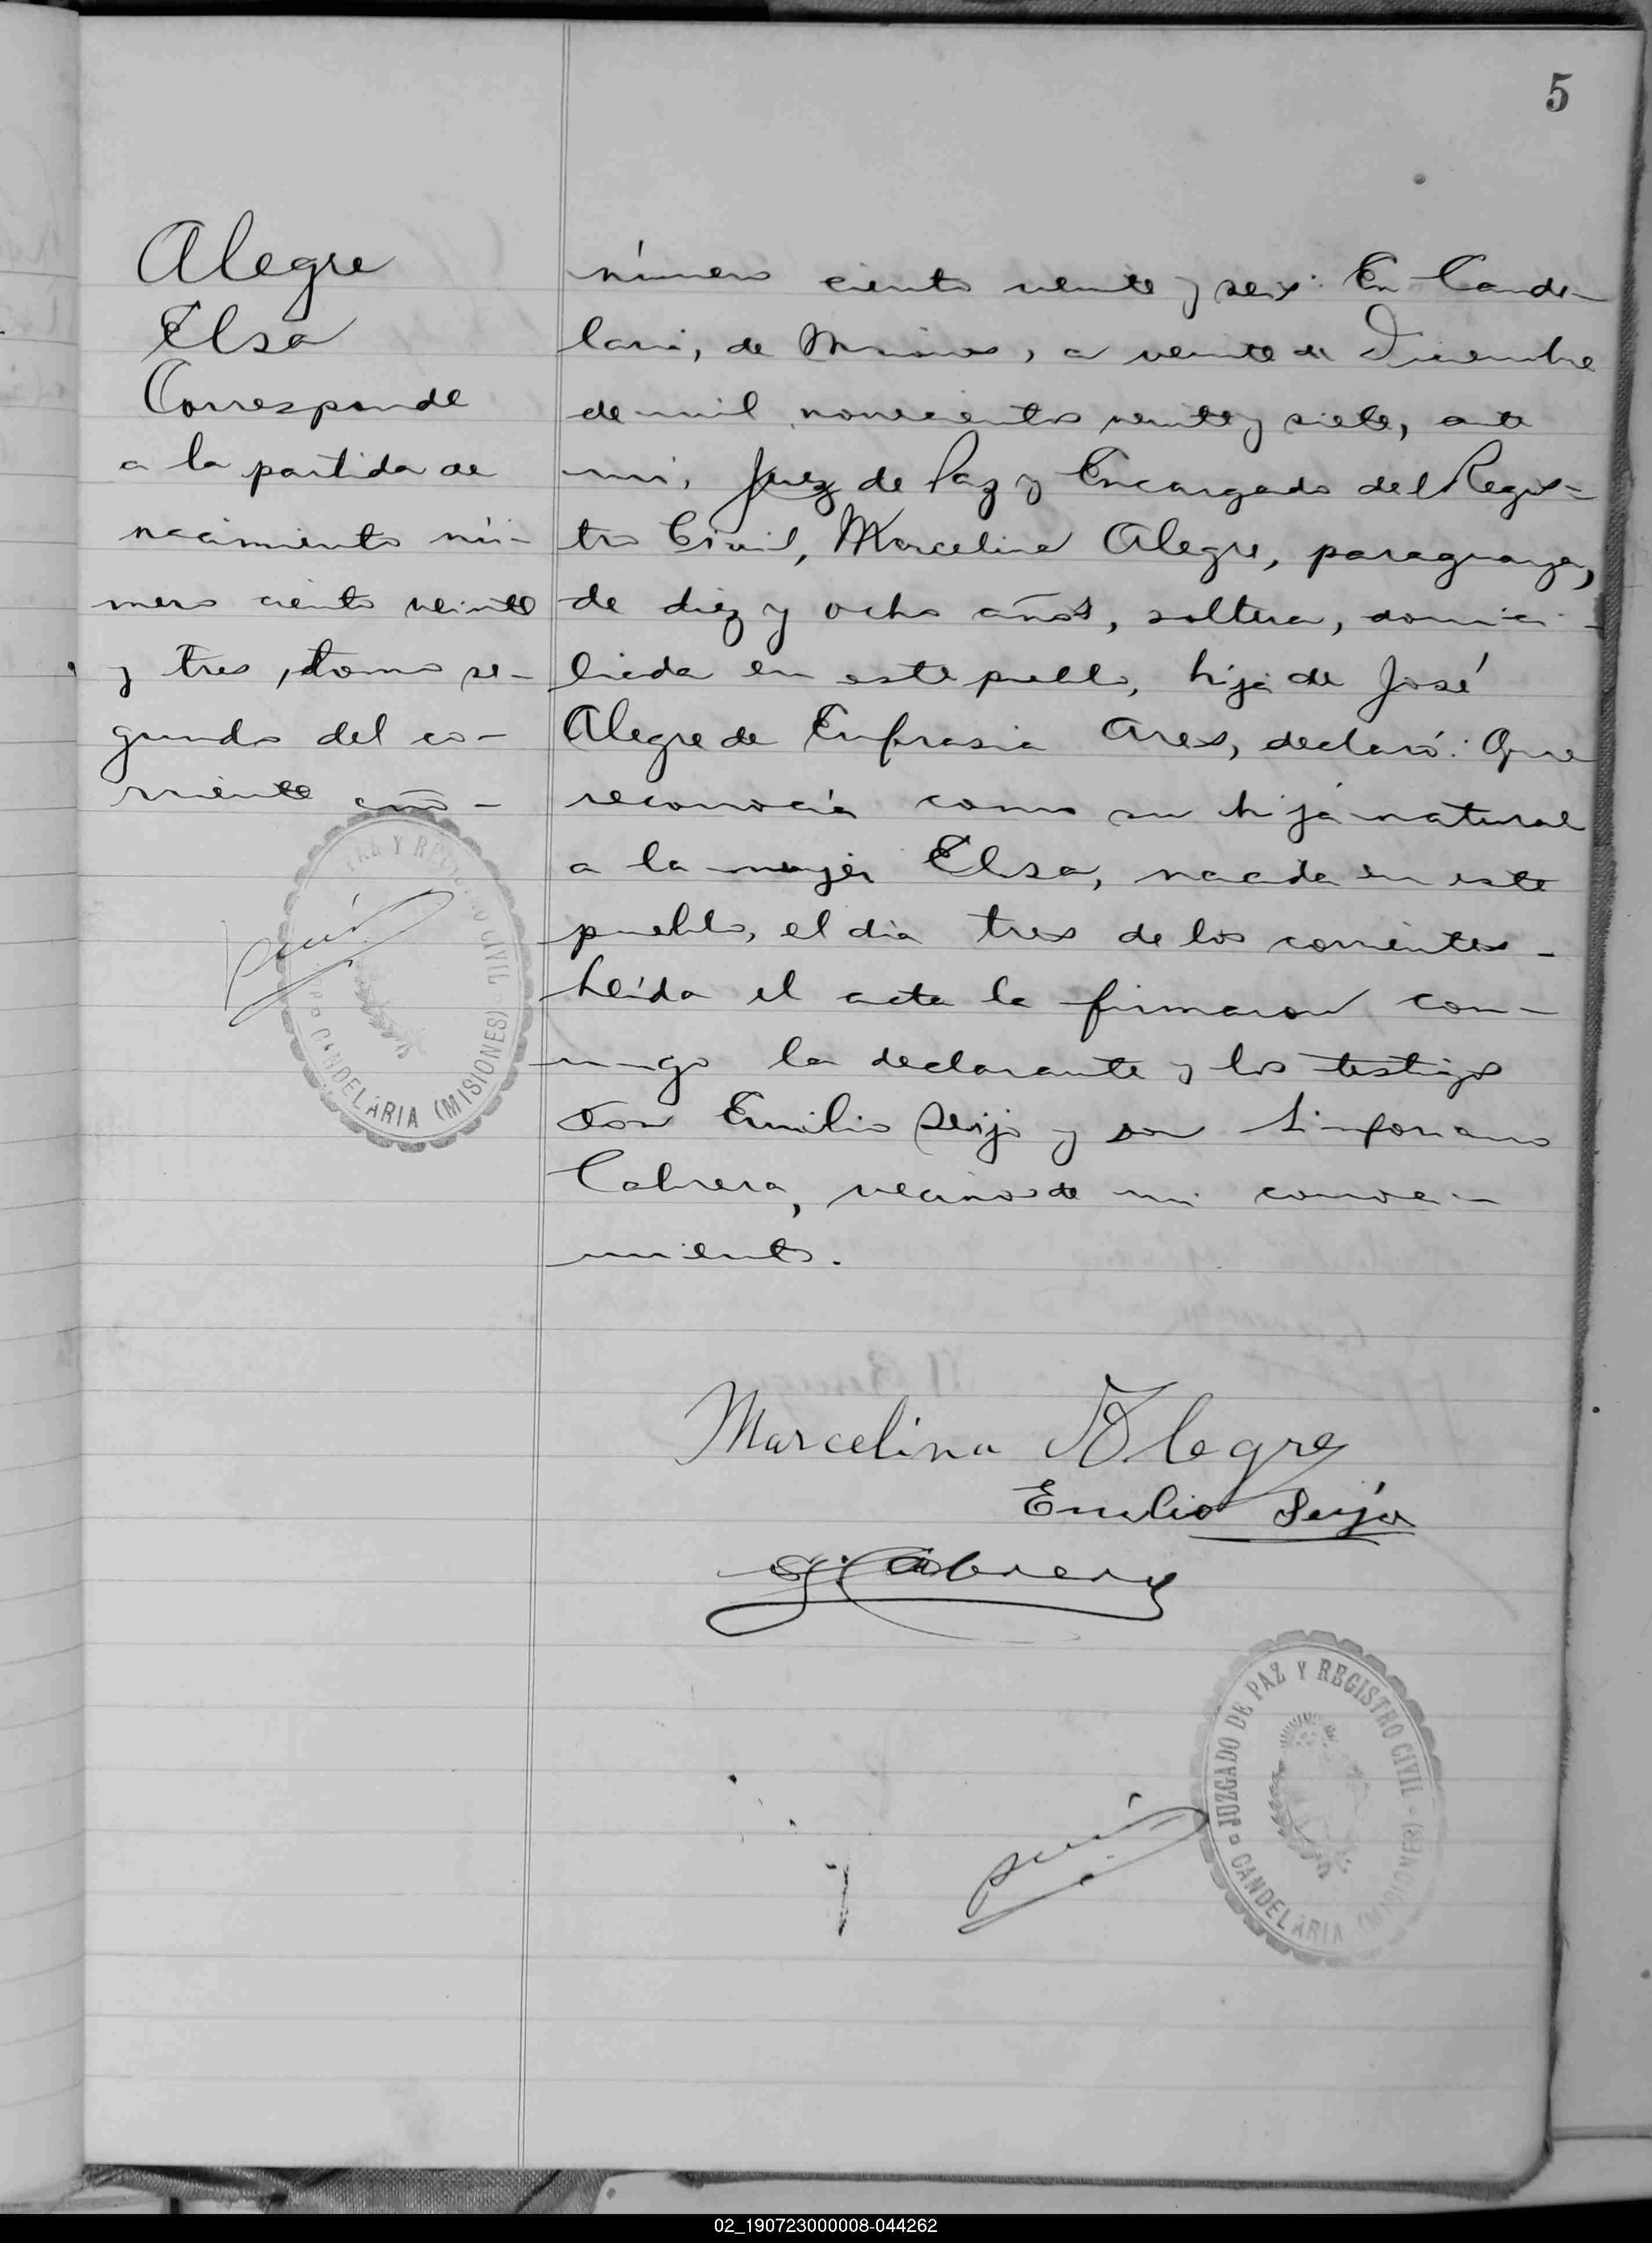 5
Alegre
Elsa
Corresponde
a la partida de
nacimiento nú-
mero ciento veinte
y tres, tomo se-
gundo del co-
rriente año -
número ciento veinte y seis: En Cande-
laria, de Misiones, a veinte de Diciembre
de mil novecientos veinte y siete, ante
mi, Juez de Paz y Encargado del Regis-
tro Civil, Marcelina Alegre, paraguaya,
de diez y ocho años, soltera, domici-
liada en este pueblo, hija de José
Alegre de Eufrasia Ares, declaró: Que
reconocía como su hija natural
a la mujer Elsa, nacida en este
pueblo, el día tres de los corrientes -
Leída el acta la firmaron con-
migo la declarante y los testigos
don Emilio Seijo y don Sinforiano
Cabrera, vecinos de mi conoci-
miento.
Marcelina Alegre
Emilio Seijo
S. Cabrera
PAZ Y REGISTRO CIVIL
CANDELARIA (MISIONES)
JUZGADO DE PAZ Y REGISTRO CIVIL
CANDELARIA (MISIONES)
02_190723000008-044262